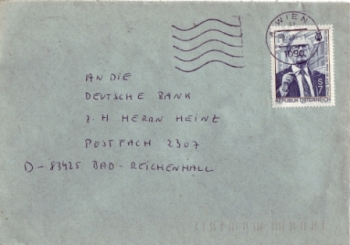 WIEN
1090
S7
REPUBLIK ÖSTERREICH
AN DIE
DEUTSCHE BANK
Z. H HERRN HEINZ
POSTFACH 2307
D-83425 BAD-REICHENHALL